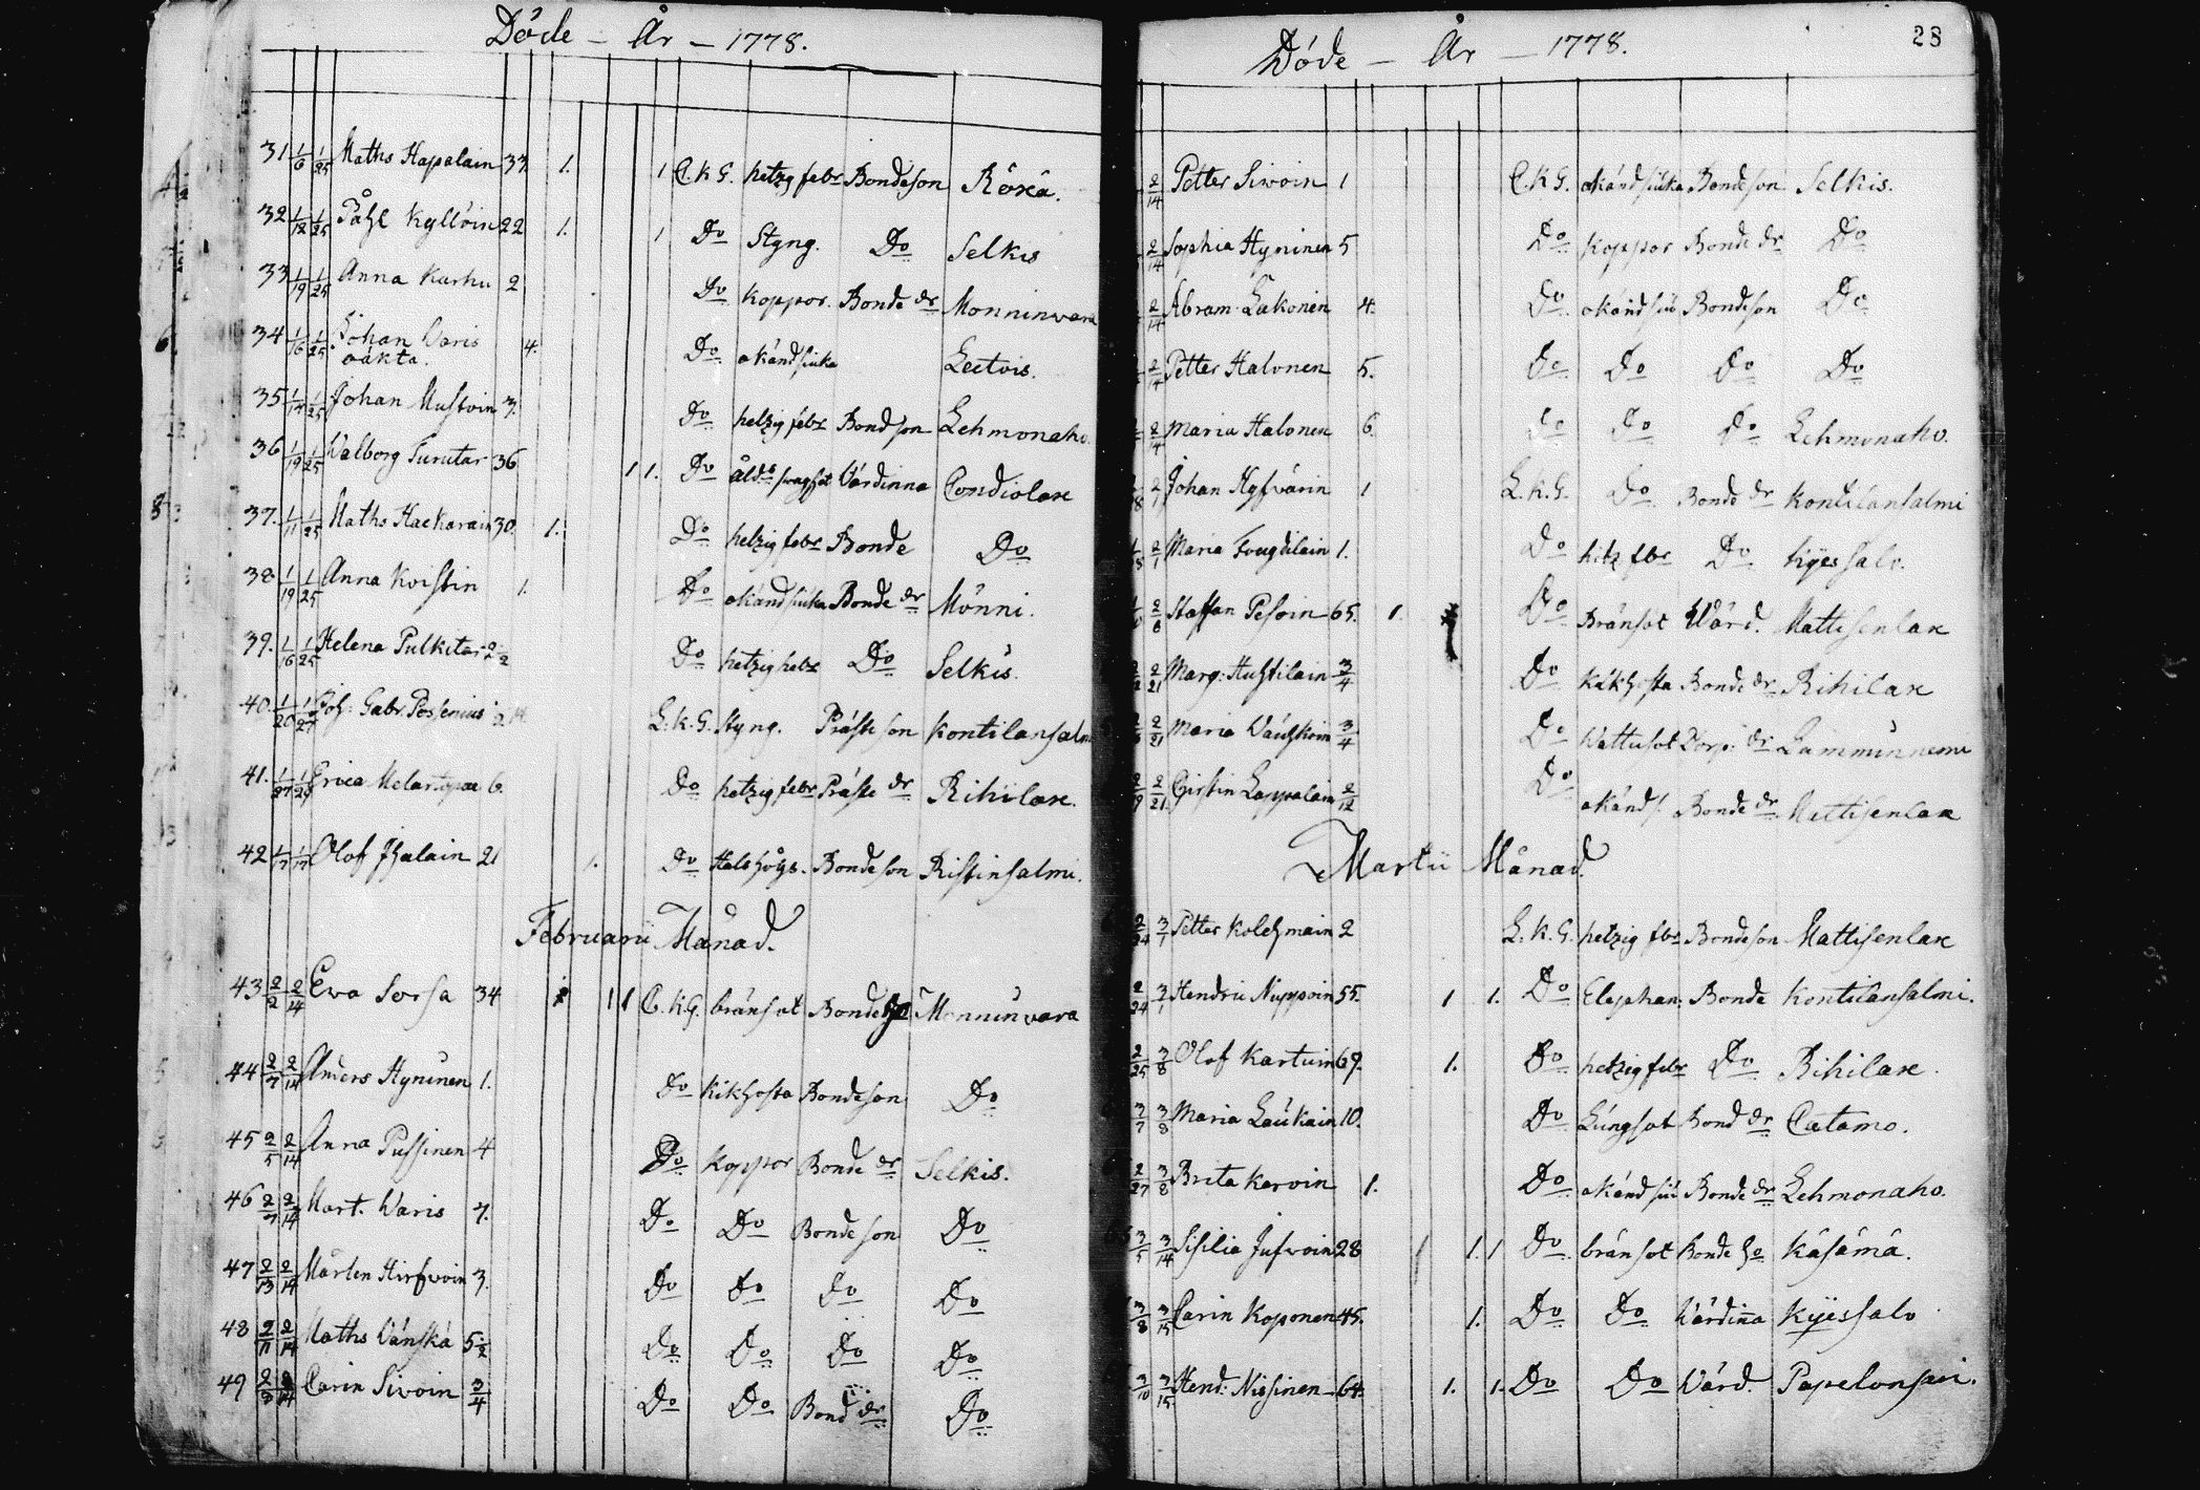 Döde - År - 1778.
31 1/6 1/25 Maths Hapalain 33. 1. 1 C.K.G. hetzig febr Bondeson Röxä.
32 1/12 1/25 Påhl Kyllöin 22 1. 1 Do Styng. Do Selkis
33 1/19 1/25 Anna Karhu 2 Do Koppor. Bonde dr Monninwara
34 1/16 1/25 Johan Waris 4. Do okänd siuka
oäkta.
35 1/14 1/25 Johan Mustoin 3. Do hetzig febr Bondson Lehmonaho.
36 1/19 1/25 Walborg Turutar 36 1 1. Do Värdinna Condiolax
37. 1/11 1/25 Maths Hackarain 30. 1. Do hetzig febr Bonde Do
38 1/19 1/25 Anna Koistin 1. Do okänd siuka Bonde dr Mönni.
39. 1/16 1/25 Helena Pulkitar 2 1/2 Do hetzig febr Do Selkis.
40. 1/20 1/27 Joh: Gabr. Possenius L.K.G. Styng. Präste son Kontilansalm
41. 1/27 1/29 Erica 6. Do hetzig febr Präste dr Rihilax.
42 1/17 1/17 Olof Ihalain 21 1. Do Halshögs. Bondeson Ristinsalmi.
Februarii Månad.
43 2/2 2/14 Eva Sorsa 34 1 1 C.K.G. bränsot Bonde Monninvara
44 2/7 2/14 Anders Hyninen 1. Do Kikhosta Bondeson Do
45 2/5 2/14 Anna Pussinen 4 Do Koppor Bonde dr Selkis.
46 2/7 2/14 Mart. Waris 7. Do Do Bondeson Do
47 2/13 2/14 Mårten Hirfwoin 3. Do Do Do Do
48 2/11 2/14 Maths Wänskä 5 1/2 Do Do Do Do
49 2/14 Carin Sivoin 3/4 Do Do Bond dr Do
Döde - År - 1778. 28
2/14 Petter Siwoin 1 C.K.G. okänd siuka Bondeson Selkis.
2/14 Sophia Hyninen 5 Do Koppor Bonde dr Do
2/14 Abram Lukonen 4. Do okänd siu Bondeson Do
2/14 Petter Halonen 5. Do Do Do Do
2/14 Maria Halonen 6. Do Do Do Lehmonaho.
2/1 Johan Hyfvärin 1 L.K.G. Do Bonde dr Kontilansalmi
2/1 Maria Fougdilain 1. Do hetz fbr Do Kyessalo.
2/8 Staffan Pesoin 65. 1. Do Bränsot Wärd. Mattisenlax
2/21 Marg: Hustilain 3/4 Do Kikhosta Bonde dr Rihilax
2/21 Maria Wäiskoin 3/4 Do Wattusot Torp: dr Lamminnemi
2/21 Cirstin Lappalain 2/12 Do okänd s. Bonde dr Mattisenlax
Martii Månad.
2/24 3/1 Petter Kolehmain 2 L.K.G. hetzig fbr Bondeson Mattisenlax
2/24 3/1 Hendric Nuppoin 55. 1 1. Do Elephan. Bonde Kontilansalmi.
2/25 3/8 Olof Kartuin 69. 1. Do hetzig febr Do Rihilax.
3/7 3/8 Maria Laukain 10. Do Lungsot Bond dr Catamo.
2/27 3/8 Brita Karvoin 1. Do okänd siu Bonde dr Lehmonaho.
3/5 3/14 Sisilia Jufvoin 28 1 1. 1 Do bränsot Bonde ho Käsämä.
3/8 3/15 Carin Koponen 45. 1. Do Do Wärdinna Kyessalo
3/10 3/15 Hend: Nissinen 64. 1. 1. Do Do Wärd. Papelonsari.